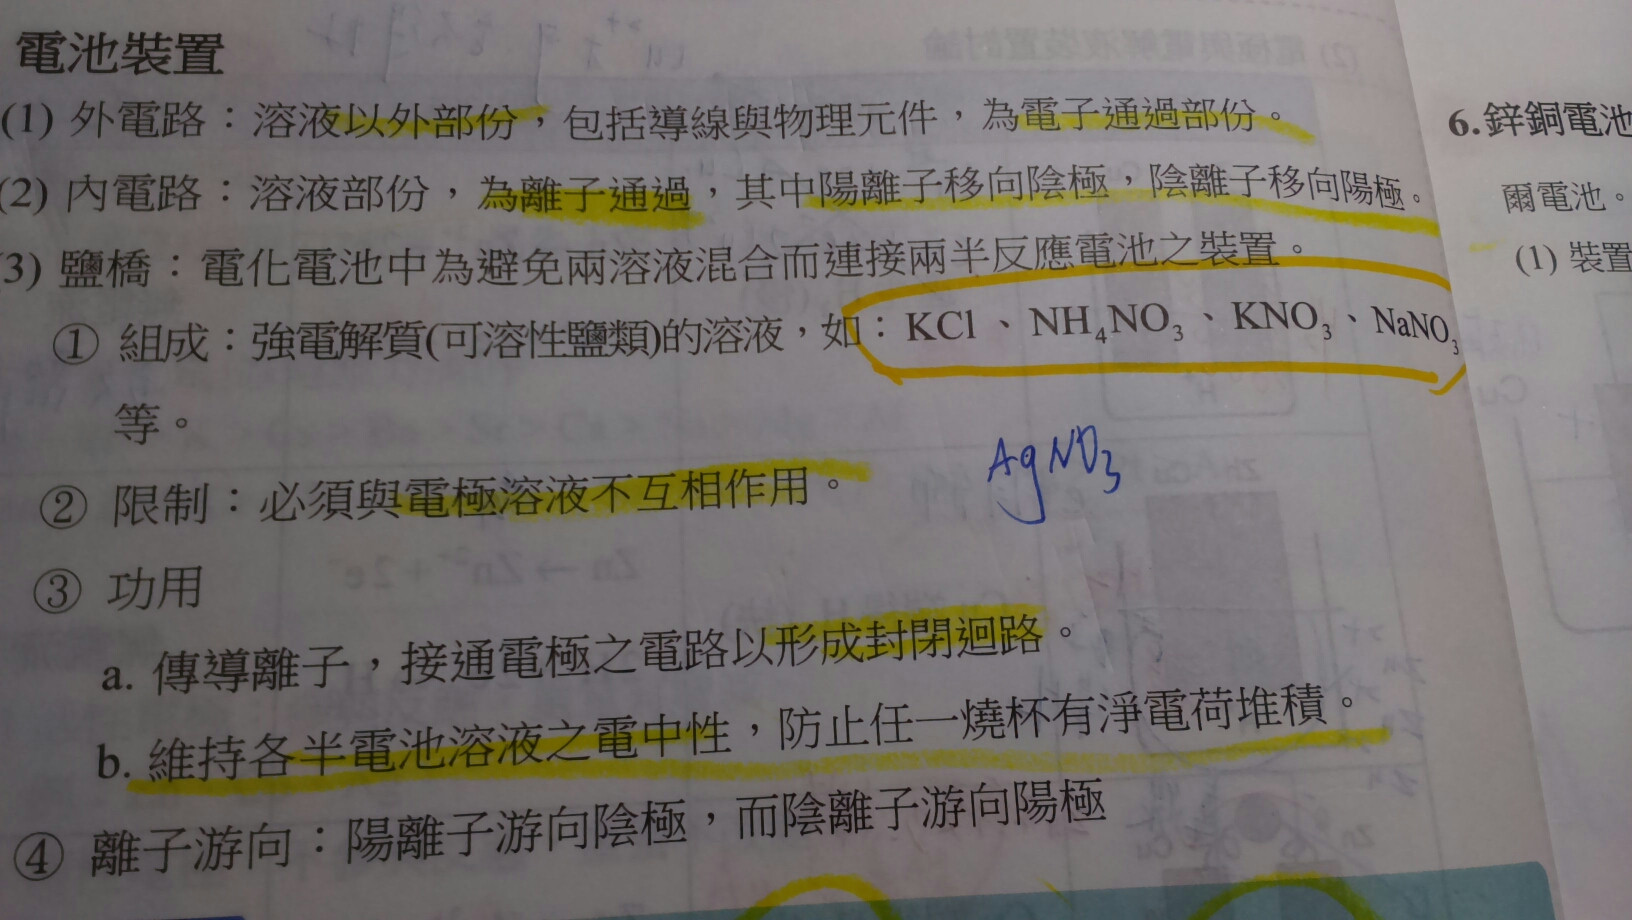 電池裝置
(1) 外電路：溶液以外部份，包括導線與物理元件，為電子通過部份。
(2) 內電路：溶液部份，為離子通過，其中陽離子移向陰極，陰離子移向陽極。
(3) 鹽橋：電化電池中為避免兩溶液混合而連接兩半反應電池之裝置。
① 組成：強電解質(可溶性鹽類)的溶液，如：KCl、NH₄NO₃、KNO₃、NaNO₃
等。
AgNO₃
② 限制：必須與電極溶液不互相作用。
③ 功用
a. 傳導離子，接通電極之電路以形成封閉迴路。
b. 維持各半電池溶液之電中性，防止任一燒杯有淨電荷堆積。
④ 離子游向：陽離子游向陰極，而陰離子游向陽極
6.鋅銅電池
爾電池。
(1) 裝置